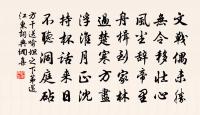 文戰偶未勝
無令移壯心
風塵辭帝里
舟楫到家林
過楚寒方盡
浮淮月正沈
持杯話來日
不聽洞庭砧
方干送喻坦之下第還
江東詞典網喜